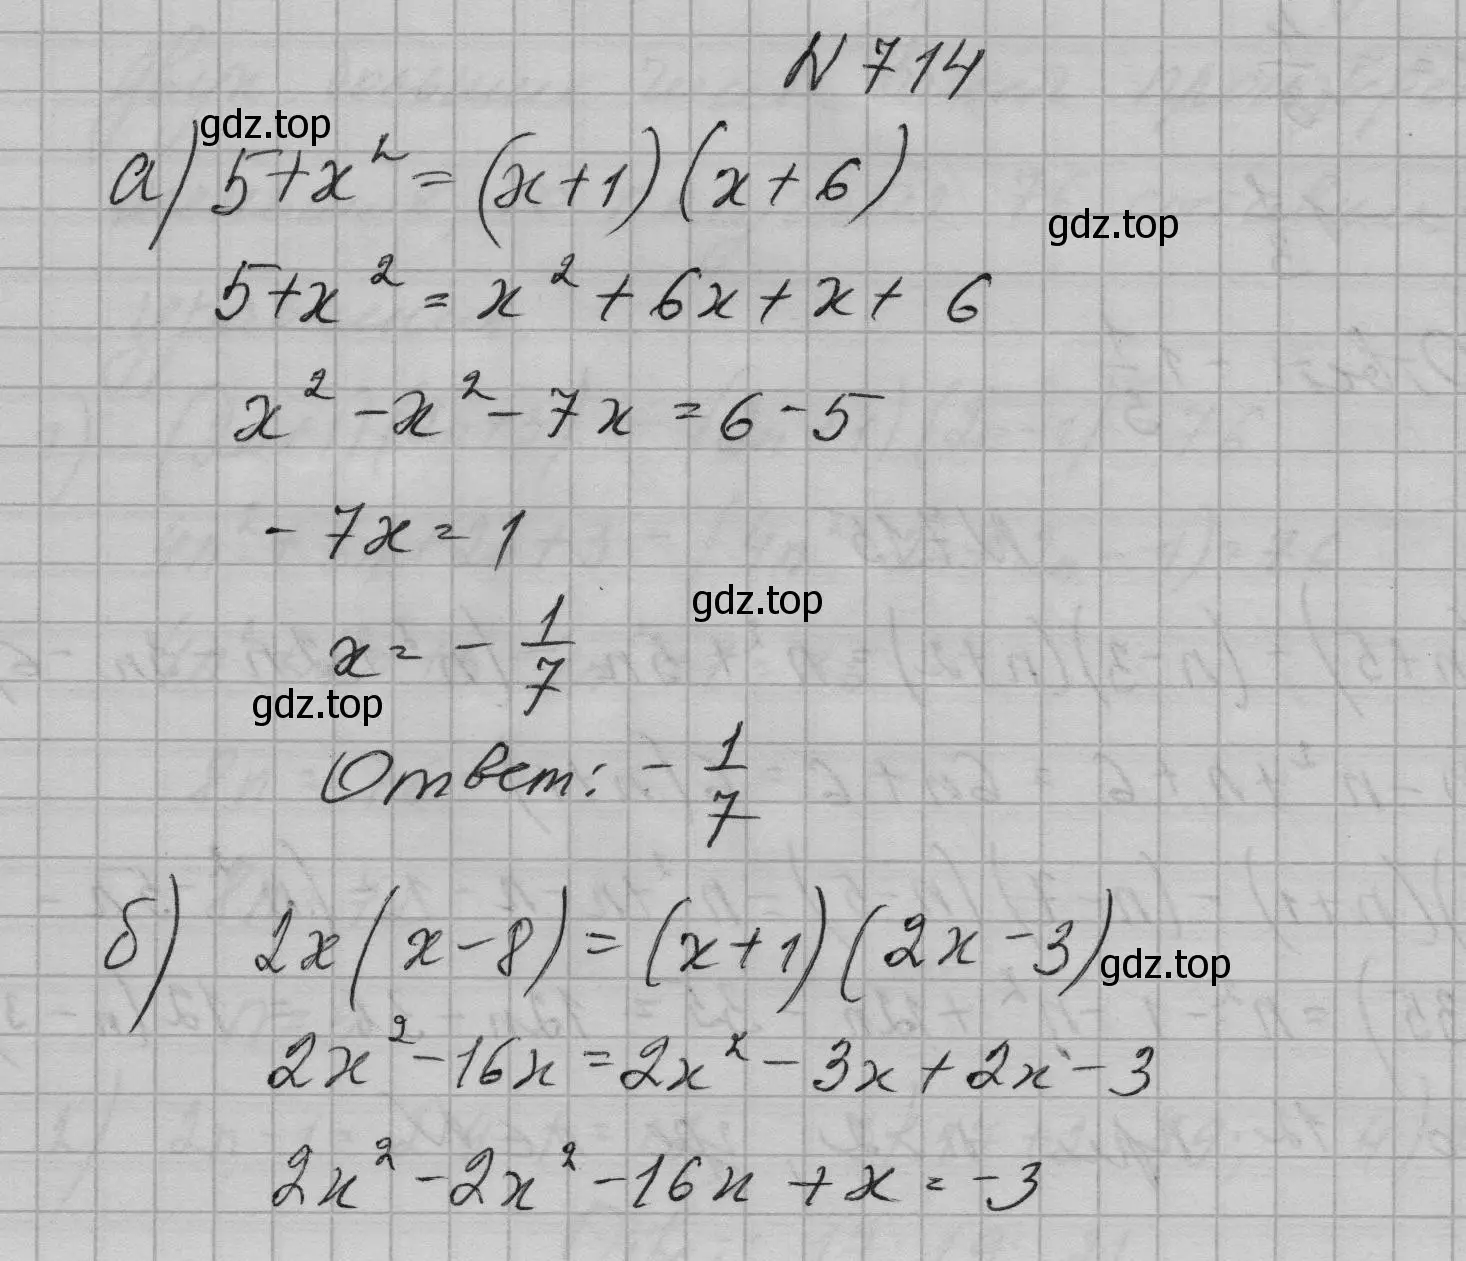 N 714
gdz.top
а) 5+x² = (x+1)(x+6)
gdz.top
5+x² = x² + 6x + x + 6
x² - x² - 7x = 6 - 5
- 7x = 1
gdz.top
x = - 1/7
gdz.top
Ответ: - 1/7
б) 2x(x-8) = (x+1)(2x-3)
gdz.top
2x² - 16x = 2x² - 3x + 2x - 3
2x² - 2x² - 16x + x = -3